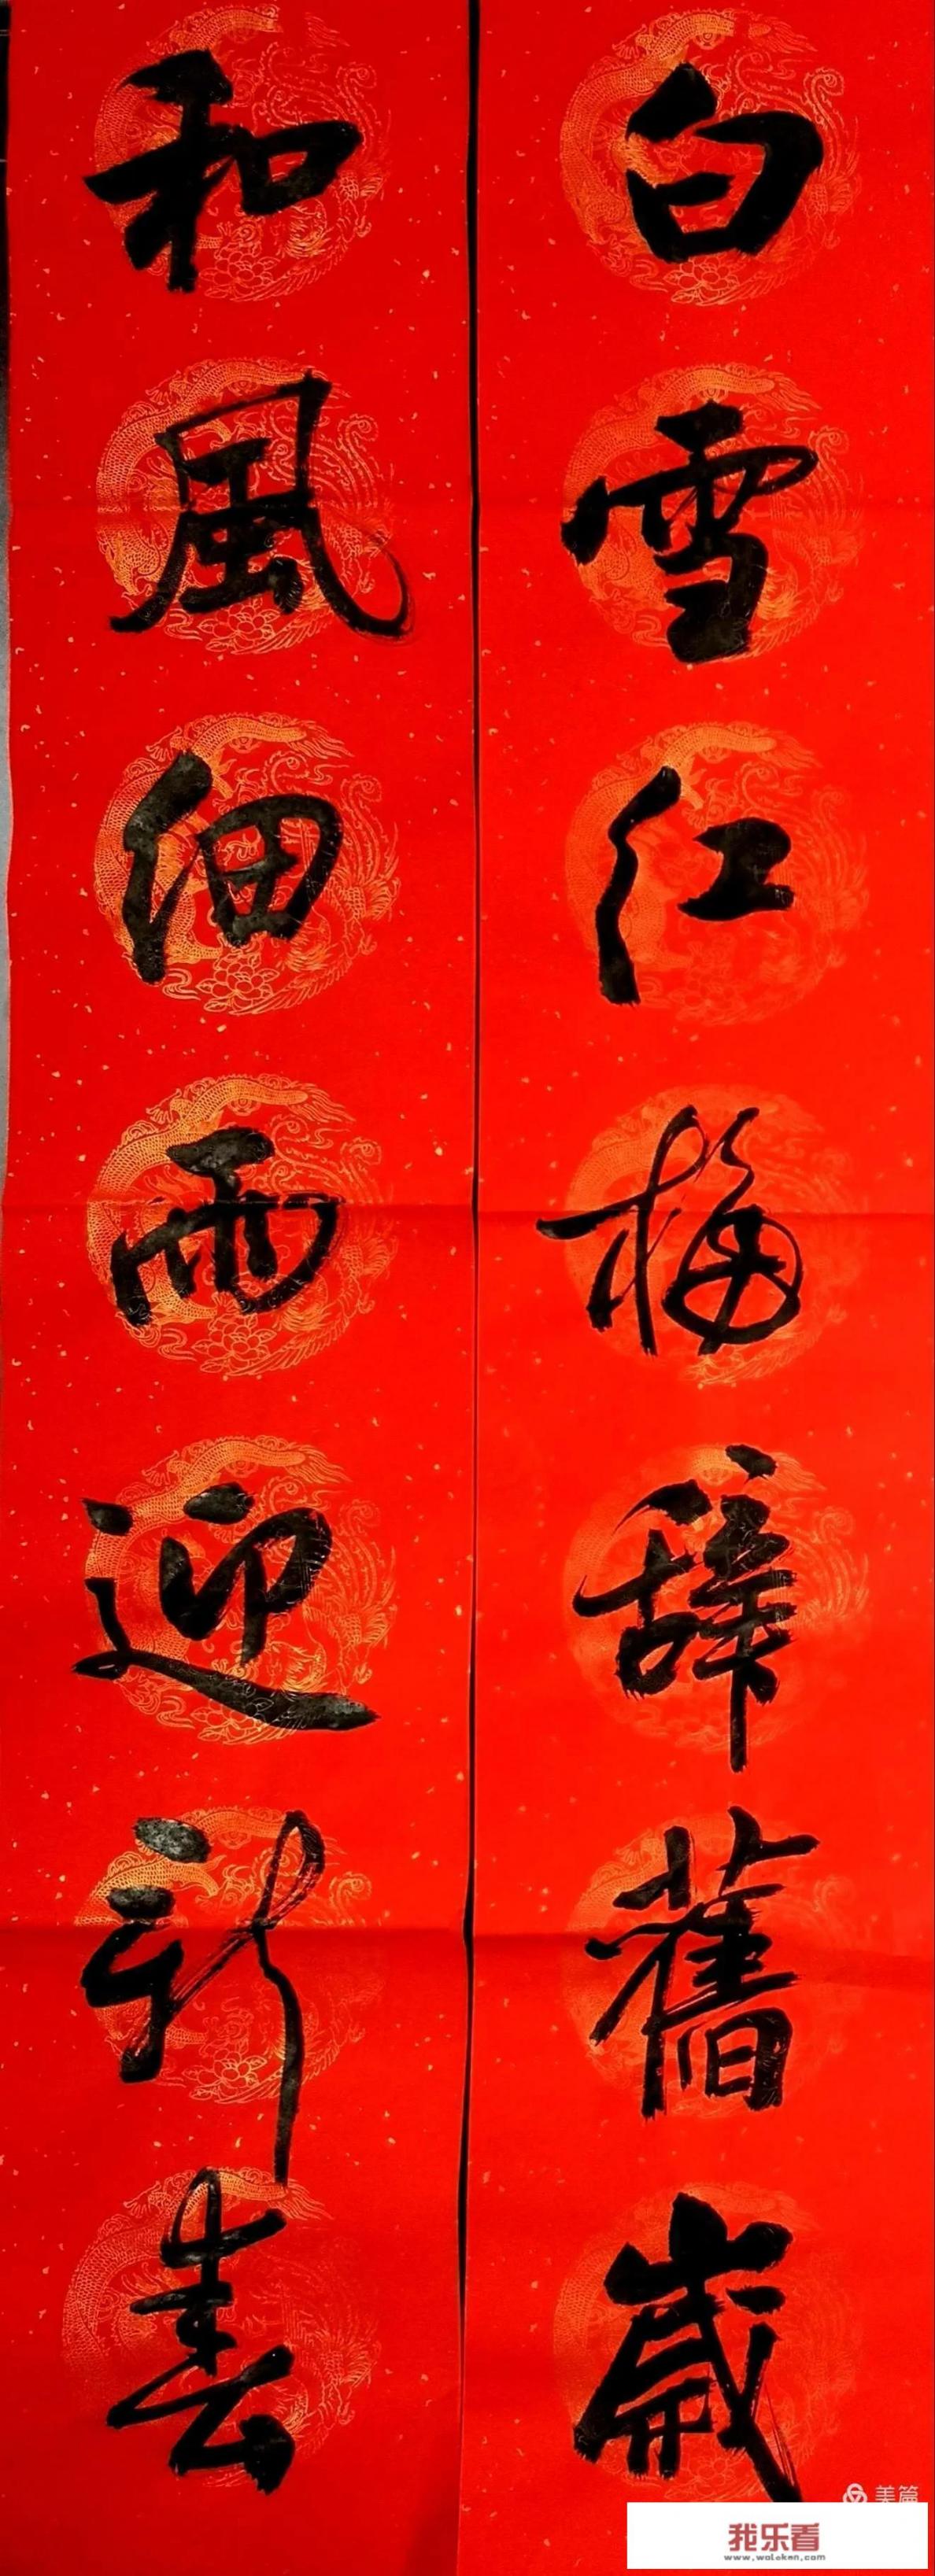 白雪红梅辞舊歲
和風细雨迎新春
美篇
我乐看
www.woloken.com